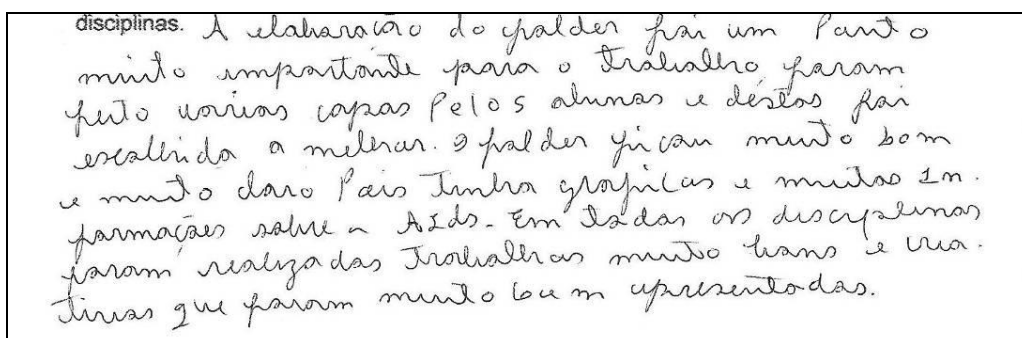 disciplinas. A elaboração do folder foi um Ponto
muito importante para o trabalho foram
feito varias capas Pelos alunos e destas foi
escolhida a melhor. O folder ficou muito bom
e muito claro Pois Tinha graficos e muitas In-
formações sobre a AIds. Em todas as disciplinas
foram realizados Trabalhos muito bons e cria-
tivos que foram muito bem apresentados.